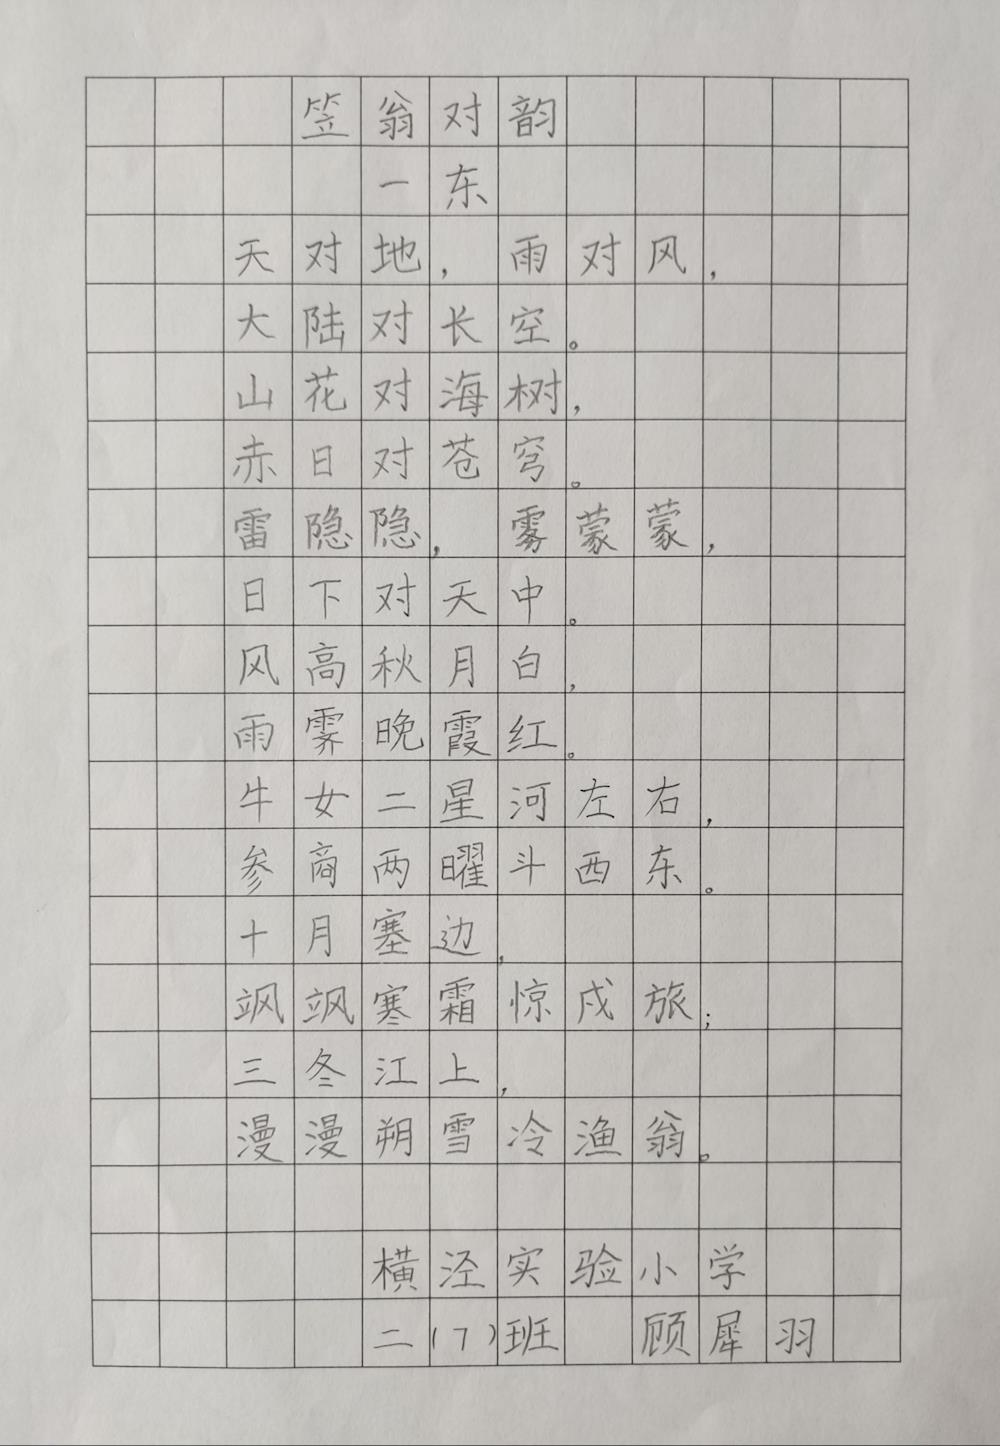 笠翁对韵
一东
天对地，雨对风，
大陆对长空。
山花对海树，
赤日对苍穹。
雷隐隐，雾蒙蒙，
日下对天中。
风高秋月白，
雨霁晚霞红。
牛女二星河左右，
参商两曜斗西东。
十月塞边，
飒飒寒霜惊戍旅；
三冬江上，
漫漫朔雪冷渔翁。
横泾实验小学
二（7）班 顾犀羽